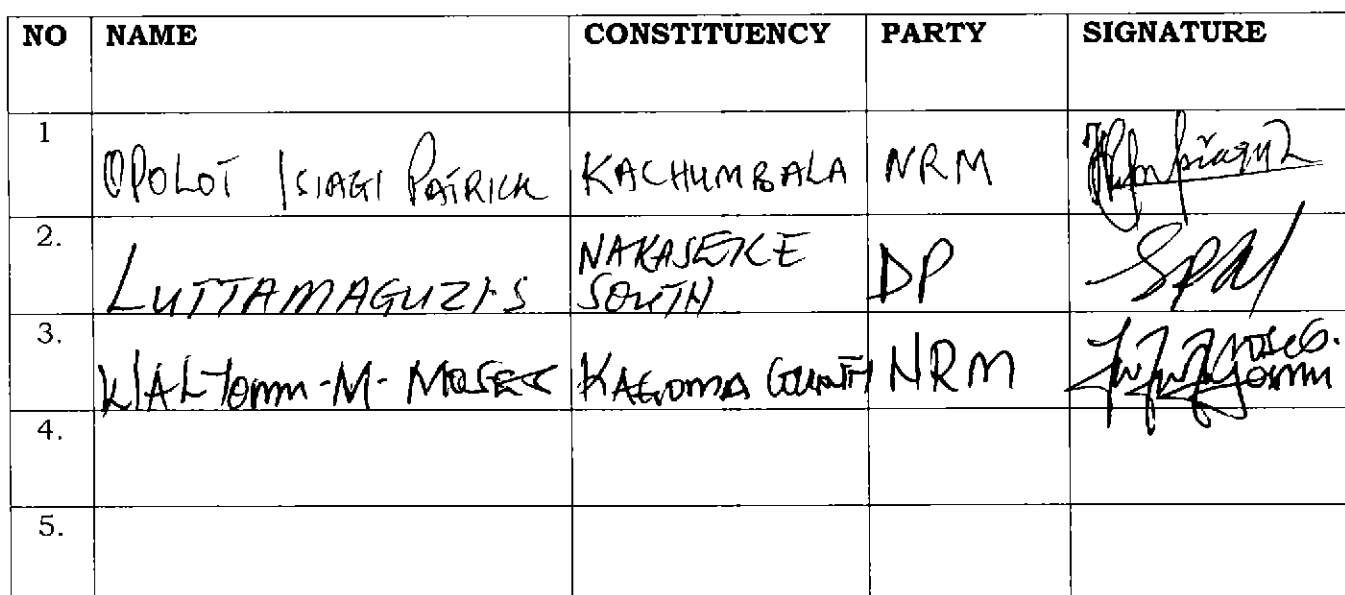 NO NAME CONSTITUENCY PARTY SIGNATURE
1 OPOLOT ISIAGI PATRICK KACHUMBALA NRM
2. LUTTAMAGUZI S NAKASEKE SOUTH DP
3. WALYOMU-M- MOSES KAGOMA COUNTY NRM
4.
5.